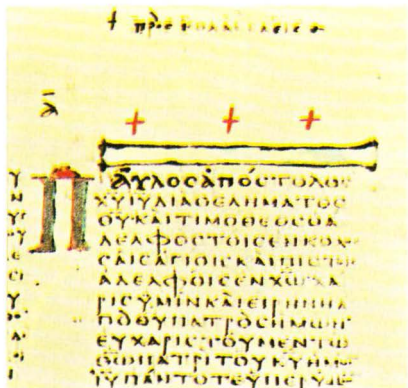 + προς κολασσαεισ
ᾱ
+ + +
ΠΑΥΛΟСΑΠΟСΤΟΛΟС
ΧΥΙΥΔΙΑΘΕΛΗΜΑΤΟС
ΘΥΚΑΙΤΙΜΟΘΕΟСΟΑ
ΔΕΛΦΟСΤΟΙСΕΝΚΟΛ
САΙСΑΓΙΟΙСΚΑΙΠΙСΤΟΙ
ΑΔΕΛΦΟΙСΕΝΧΩΧΑ
ΡΙСΥΜΙΝΚΑΙΕΙΡΗΝΗΑ
ΠΟΘΥΠΑΤΡΟСΗΜΩΝ
ΕΥΧΑΡΙСΤΟΥΜΕΝΤΩ
ΘΩΠΑΤΡΙΤΟΥΚΥΗΜΩ
ΙΥΠΑΝΤΟΤΕΥΠΕΡΥΜ